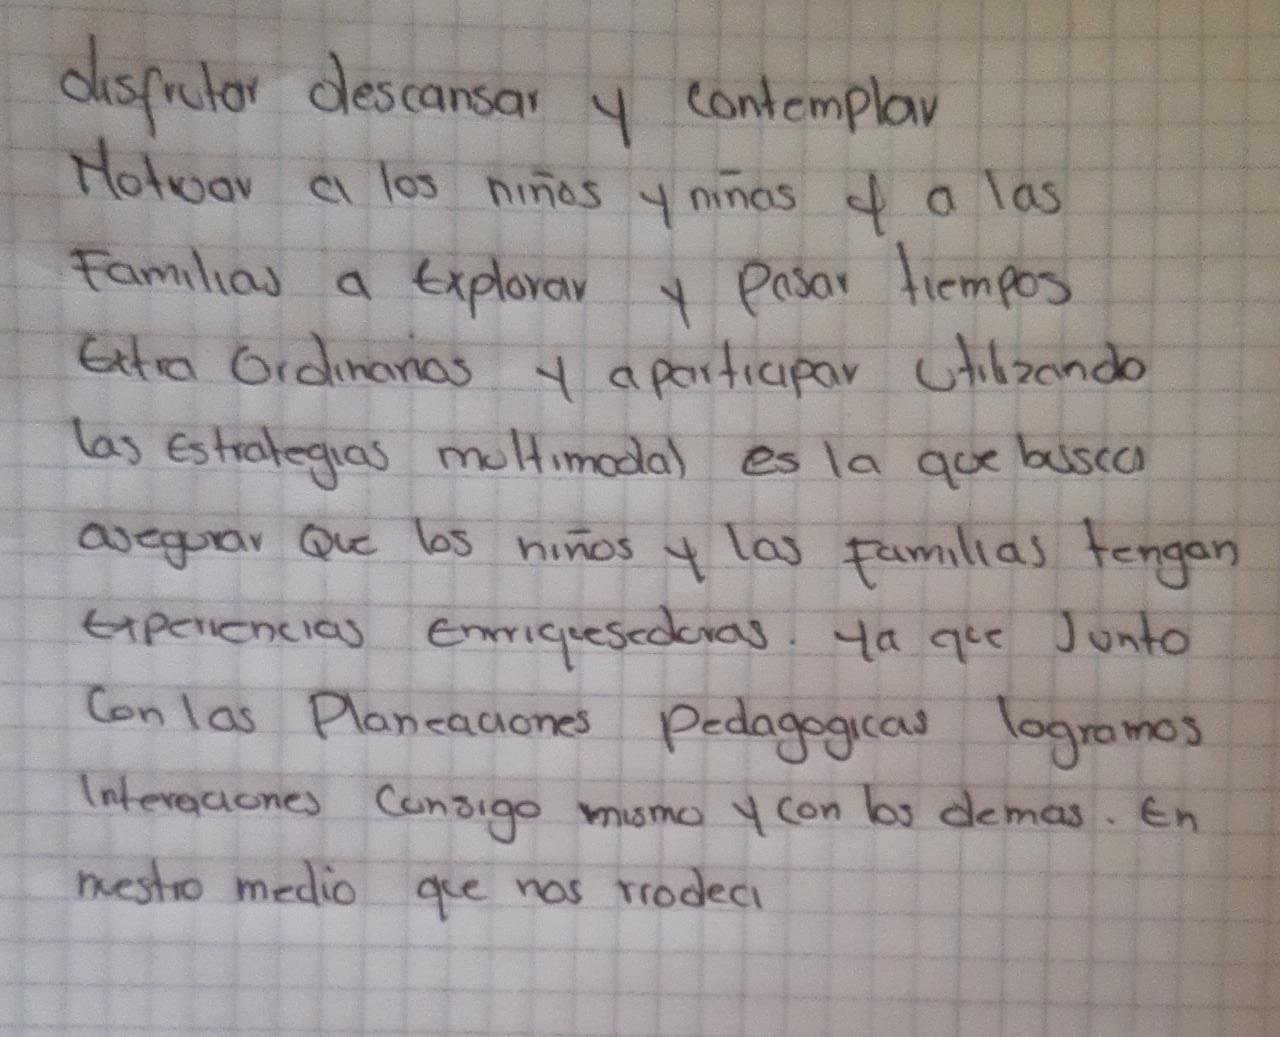 disfrutar descansar y contemplar
Motivar a los niños y niñas y a las
Familias a Explorar y Pasar tiempos
Extra Ordinarios y a participar Utilizando
las Estrategias multimodal es la que bussca
asegurar Que los niños y las Familias tengan
Experiencias Enrriquesedoras. Ya que Junto
Con las Planeaciones Pedagogicas logramos
Interaciones Consigo mismo y con los demas. En
nuestro medio que nos rrodea